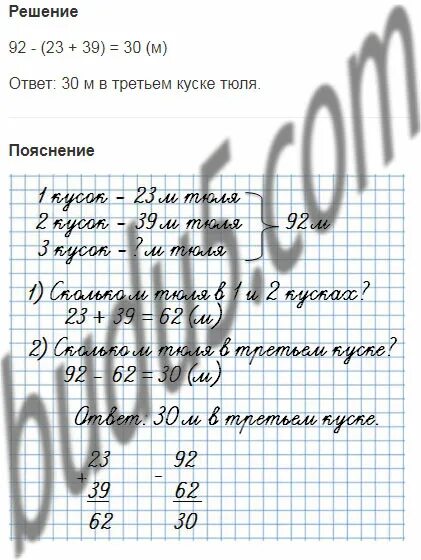 Решение
92 - (23 + 39) = 30 (м)
Ответ: 30 м в третьем куске тюля.
Пояснение
1 кусок – 23 м тюля
2 кусок – 39 м тюля
92 м
3 кусок – ? м тюля
1) Сколько м тюля в 1 и 2 кусках?
23 + 39 = 62 (м)
2) Сколько м тюля в третьем куске?
92 – 62 = 30 (м)
Ответ: 30 м в третьем куске.
23
+
39
62
92
-
62
30
budu5.com